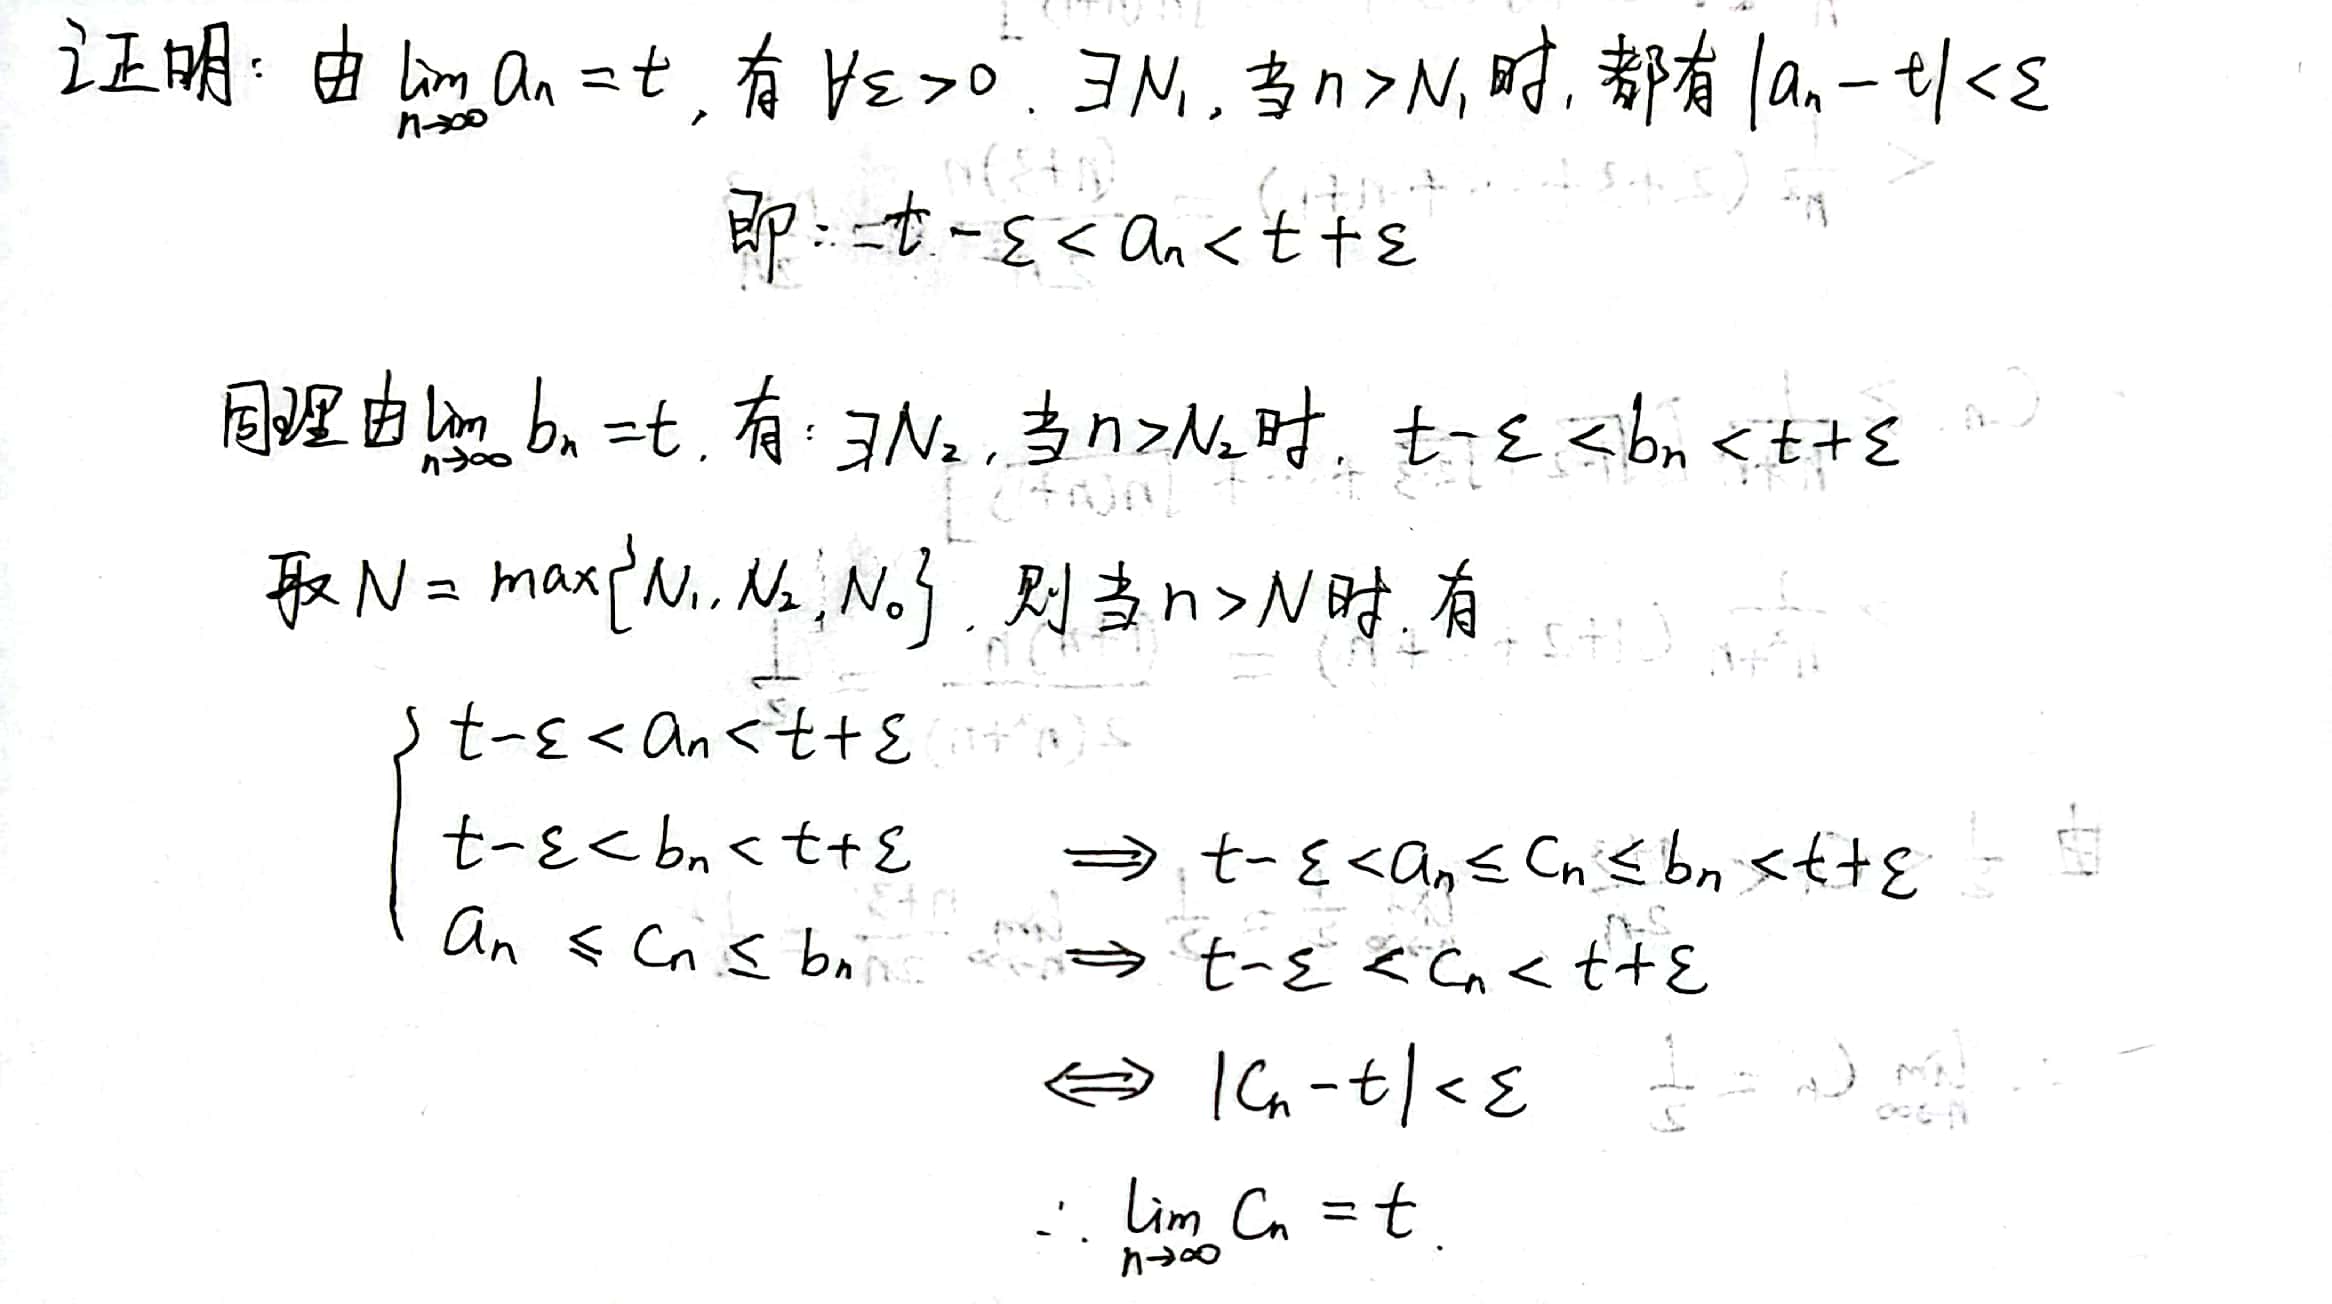 证明: 由 lim_{n→∞} a_n = t, 有 ∀ε>0. ∃N₁, 当 n>N₁ 时, 都有 |a_n - t|<ε
即: t-ε < a_n < t+ε
同理由 lim_{n→∞} b_n = t, 有: ∃N₂, 当 n>N₂ 时, t-ε < b_n < t+ε
取 N = max{N₁, N₂, N₀}, 则当 n>N 时, 有
{ t-ε < a_n < t+ε
t-ε < b_n < t+ε ⇒ t-ε < a_n ≤ c_n ≤ b_n < t+ε
a_n ≤ c_n ≤ b_n ⇒ t-ε < c_n < t+ε
⇔ |c_n - t| < ε
∴ lim_{n→∞} c_n = t.